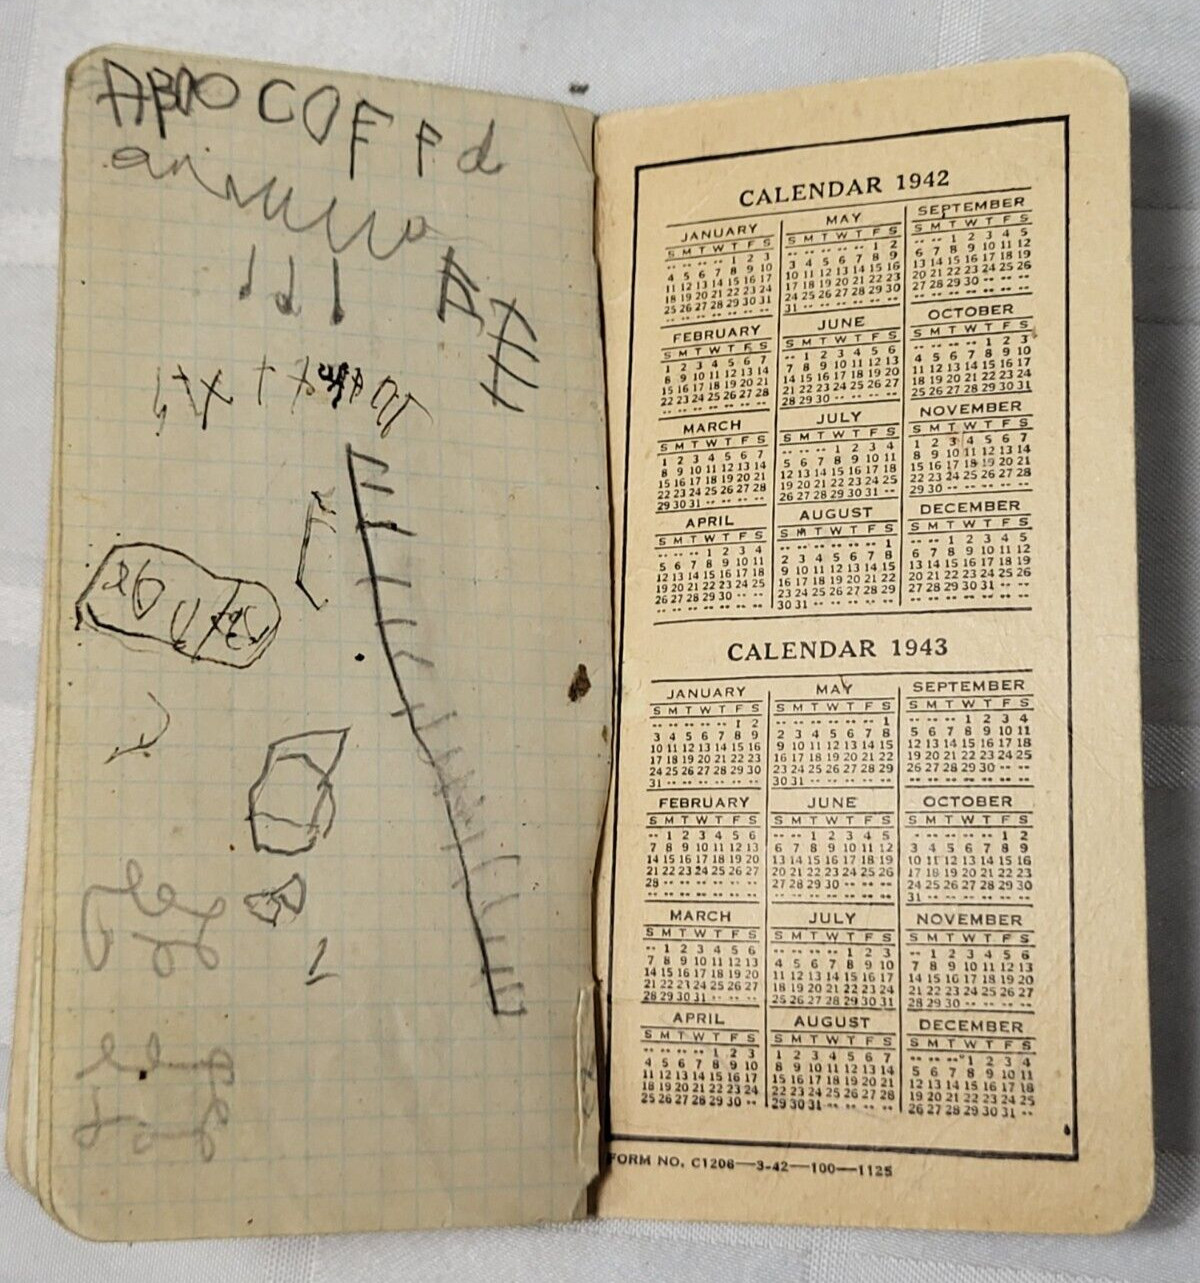 COF F d
CALENDAR 1942
JANUARY
S M T W T F S
.. .. .. .. 1 2 3
4 5 6 7 8 9 10
11 12 13 14 15 16 17
18 19 20 21 22 23 24
25 26 27 28 29 30 31
.. .. .. .. .. .. ..
FEBRUARY
S M T W T F S
1 2 3 4 5 6 7
8 9 10 11 12 13 14
15 16 17 18 19 20 21
22 23 24 25 26 27 28
MARCH
S M T W T F S
1 2 3 4 5 6 7
8 9 10 11 12 13 14
15 16 17 18 19 20 21
22 23 24 25 26 27 28
29 30 31 .. .. .. ..
APRIL
S M T W T F S
.. .. .. 1 2 3 4
5 6 7 8 9 10 11
12 13 14 15 16 17 18
19 20 21 22 23 24 25
26 27 28 29 30 .. ..
.. .. .. .. .. .. ..
MAY
S M T W T F S
.. .. .. .. .. 1 2
3 4 5 6 7 8 9
10 11 12 13 14 15 16
17 18 19 20 21 22 23
24 25 26 27 28 29 30
31 .. .. .. .. .. ..
JUNE
S M T W T F S
.. 1 2 3 4 5 6
7 8 9 10 11 12 13
14 15 16 17 18 19 20
21 22 23 24 25 26 27
28 29 30 .. .. .. ..
JULY
S M T W T F S
.. .. .. 1 2 3 4
5 6 7 8 9 10 11
12 13 14 15 16 17 18
19 20 21 22 23 24 25
26 27 28 29 30 31 ..
AUGUST
S M T W T F S
.. .. .. .. .. .. 1
2 3 4 5 6 7 8
9 10 11 12 13 14 15
16 17 18 19 20 21 22
23 24 25 26 27 28 29
30 31 .. .. .. .. ..
SEPTEMBER
S M T W T F S
.. .. 1 2 3 4 5
6 7 8 9 10 11 12
13 14 15 16 17 18 19
20 21 22 23 24 25 26
27 28 29 30 .. .. ..
OCTOBER
S M T W T F S
.. .. .. .. 1 2 3
4 5 6 7 8 9 10
11 12 13 14 15 16 17
18 19 20 21 22 23 24
25 26 27 28 29 30 31
NOVEMBER
S M T W T F S
1 2 3 4 5 6 7
8 9 10 11 12 13 14
15 16 17 18 19 20 21
22 23 24 25 26 27 28
29 30 .. .. .. .. ..
DECEMBER
S M T W T F S
.. .. 1 2 3 4 5
6 7 8 9 10 11 12
13 14 15 16 17 18 19
20 21 22 23 24 25 26
27 28 29 30 31 .. ..
.. .. .. .. .. .. ..
CALENDAR 1943
JANUARY
S M T W T F S
.. .. .. .. .. 1 2
3 4 5 6 7 8 9
10 11 12 13 14 15 16
17 18 19 20 21 22 23
24 25 26 27 28 29 30
31 .. .. .. .. .. ..
FEBRUARY
S M T W T F S
.. 1 2 3 4 5 6
7 8 9 10 11 12 13
14 15 16 17 18 19 20
21 22 23 24 25 26 27
28 .. .. .. .. .. ..
.. .. .. .. .. .. ..
MARCH
S M T W T F S
.. 1 2 3 4 5 6
7 8 9 10 11 12 13
14 15 16 17 18 19 20
21 22 23 24 25 26 27
28 29 30 31 .. .. ..
APRIL
S M T W T F S
.. .. .. .. 1 2 3
4 5 6 7 8 9 10
11 12 13 14 15 16 17
18 19 20 21 22 23 24
25 26 27 28 29 30 ..
MAY
S M T W T F S
.. .. .. .. .. .. 1
2 3 4 5 6 7 8
9 10 11 12 13 14 15
16 17 18 19 20 21 22
23 24 25 26 27 28 29
30 31 .. .. .. .. ..
JUNE
S M T W T F S
.. .. 1 2 3 4 5
6 7 8 9 10 11 12
13 14 15 16 17 18 19
20 21 22 23 24 25 26
27 28 29 30 .. .. ..
.. .. .. .. .. .. ..
JULY
S M T W T F S
.. .. .. .. 1 2 3
4 5 6 7 8 9 10
11 12 13 14 15 16 17
18 19 20 21 22 23 24
25 26 27 28 29 30 31
AUGUST
S M T W T F S
1 2 3 4 5 6 7
8 9 10 11 12 13 14
15 16 17 18 19 20 21
22 23 24 25 26 27 28
29 30 31 .. .. .. ..
SEPTEMBER
S M T W T F S
.. .. .. 1 2 3 4
5 6 7 8 9 10 11
12 13 14 15 16 17 18
19 20 21 22 23 24 25
26 27 28 29 30 .. ..
.. .. .. .. .. .. ..
OCTOBER
S M T W T F S
.. .. .. .. .. 1 2
3 4 5 6 7 8 9
10 11 12 13 14 15 16
17 18 19 20 21 22 23
24 25 26 27 28 29 30
31 .. .. .. .. .. ..
NOVEMBER
S M T W T F S
.. 1 2 3 4 5 6
7 8 9 10 11 12 13
14 15 16 17 18 19 20
21 22 23 24 25 26 27
28 29 30 .. .. .. ..
DECEMBER
S M T W T F S
.. .. .. 1 2 3 4
5 6 7 8 9 10 11
12 13 14 15 16 17 18
19 20 21 22 23 24 25
26 27 28 29 30 31 ..
FORM NO. C1206—3-42—100—1125